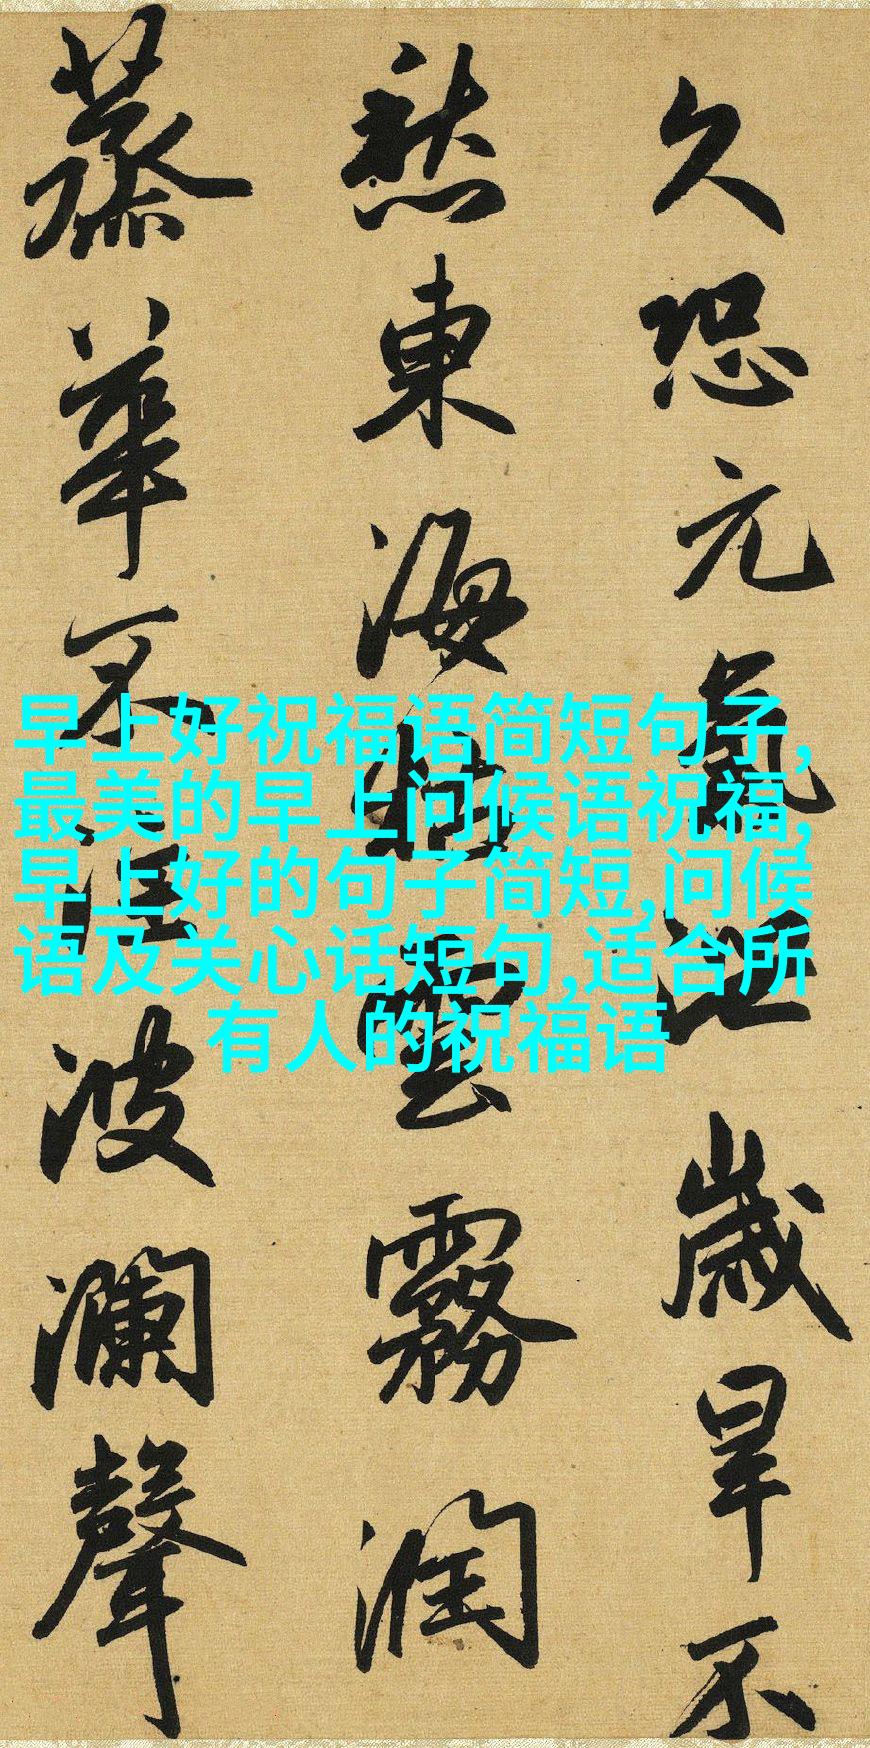 久恐元氣泄歲旱不
愁東海枯雲霧潤
蒸華不注波瀾聲
早上好祝福语简短句子,
最美的早上问候语祝福,
早上好的句子简短,问候
语及关心话短句,适合所
有人的祝福语